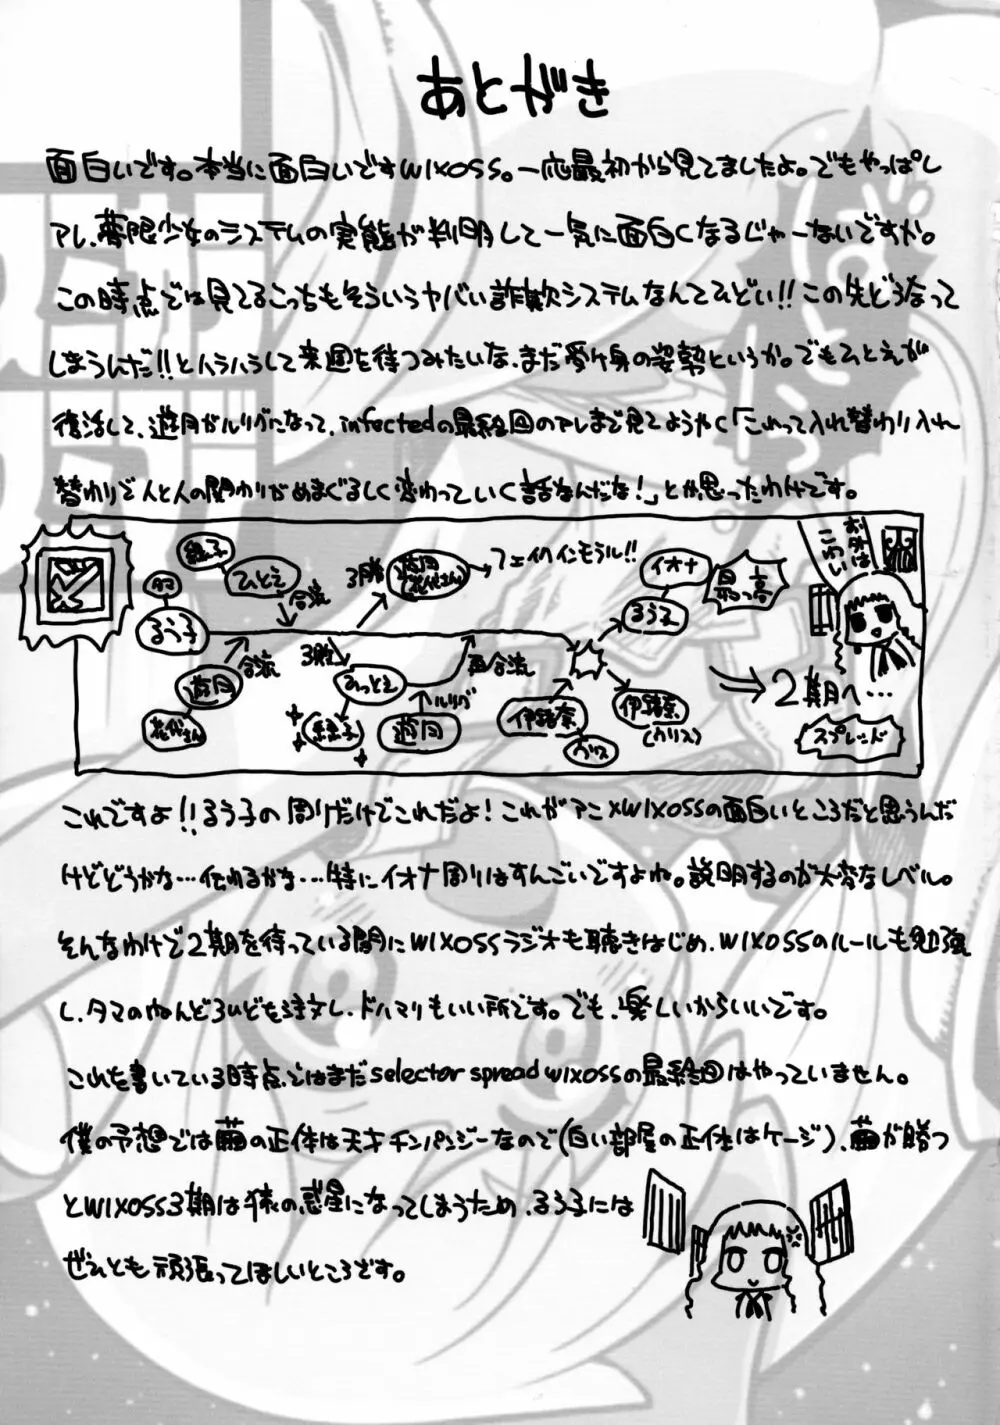 あとがき
面白いです。本当に面白いですWIXOSS。一応最初から見てましたよ。でもやっぱし
アレ、夢限少女のシステムの実態が判明して一気に面白くなるじゃーないですか。
この時点では見てるこっちもそういうヤバい詐欺システムなんてひどい!!この先どうなって
しまうんだ!!とハラハラして来週を待つみたいな、まだ受け身の姿勢というか。でもひとえが
復活して、遊月がルリグになって、infectedの最終回のアレまで見てようやく「これって入れ替わり入れ
替わりで人と人の関わりがめまぐるしく変わっていく話なんだな!」とか思ったわけです。
タマ
るう子
緑子
ひとえ
合流
遊月
花代さん
合流
3勝
遊月
(花代さん)
フェイクインモラル!!
3敗
ひとえ
緑子
ルリグ
遊月
再合流
伊緒奈
ウリス
イオナ
るう子
最っ高
伊緒奈
(ウリス)
2期へ…
スプレッド
お外は
こわい
これですよ!!るう子の周りだけでこれだよ!これがアニメWIXOSSの面白いところだと思うんだ
けどどうかな…伝わるかな…特にイオナ周りはすんごいですよね。説明するのが大変なレベル。
そんなわけで2期を待っている間にWIXOSSラジオも聴きはじめ、WIXOSSのルールも勉強
し、タマのねんどろいども注文し、ドハマりもいい所です。でも、楽しいからいいです。
これを書いている時点ではまだselector spread wixossの最終回はやっていません。
僕の予想では繭の正体は天才チンパンジーなので(白い部屋の正体はケージ)、繭が勝つ
とWIXOSS3期は猿の惑星になってしまうため、るう子には
ぜひとも頑張ってほしいところです。